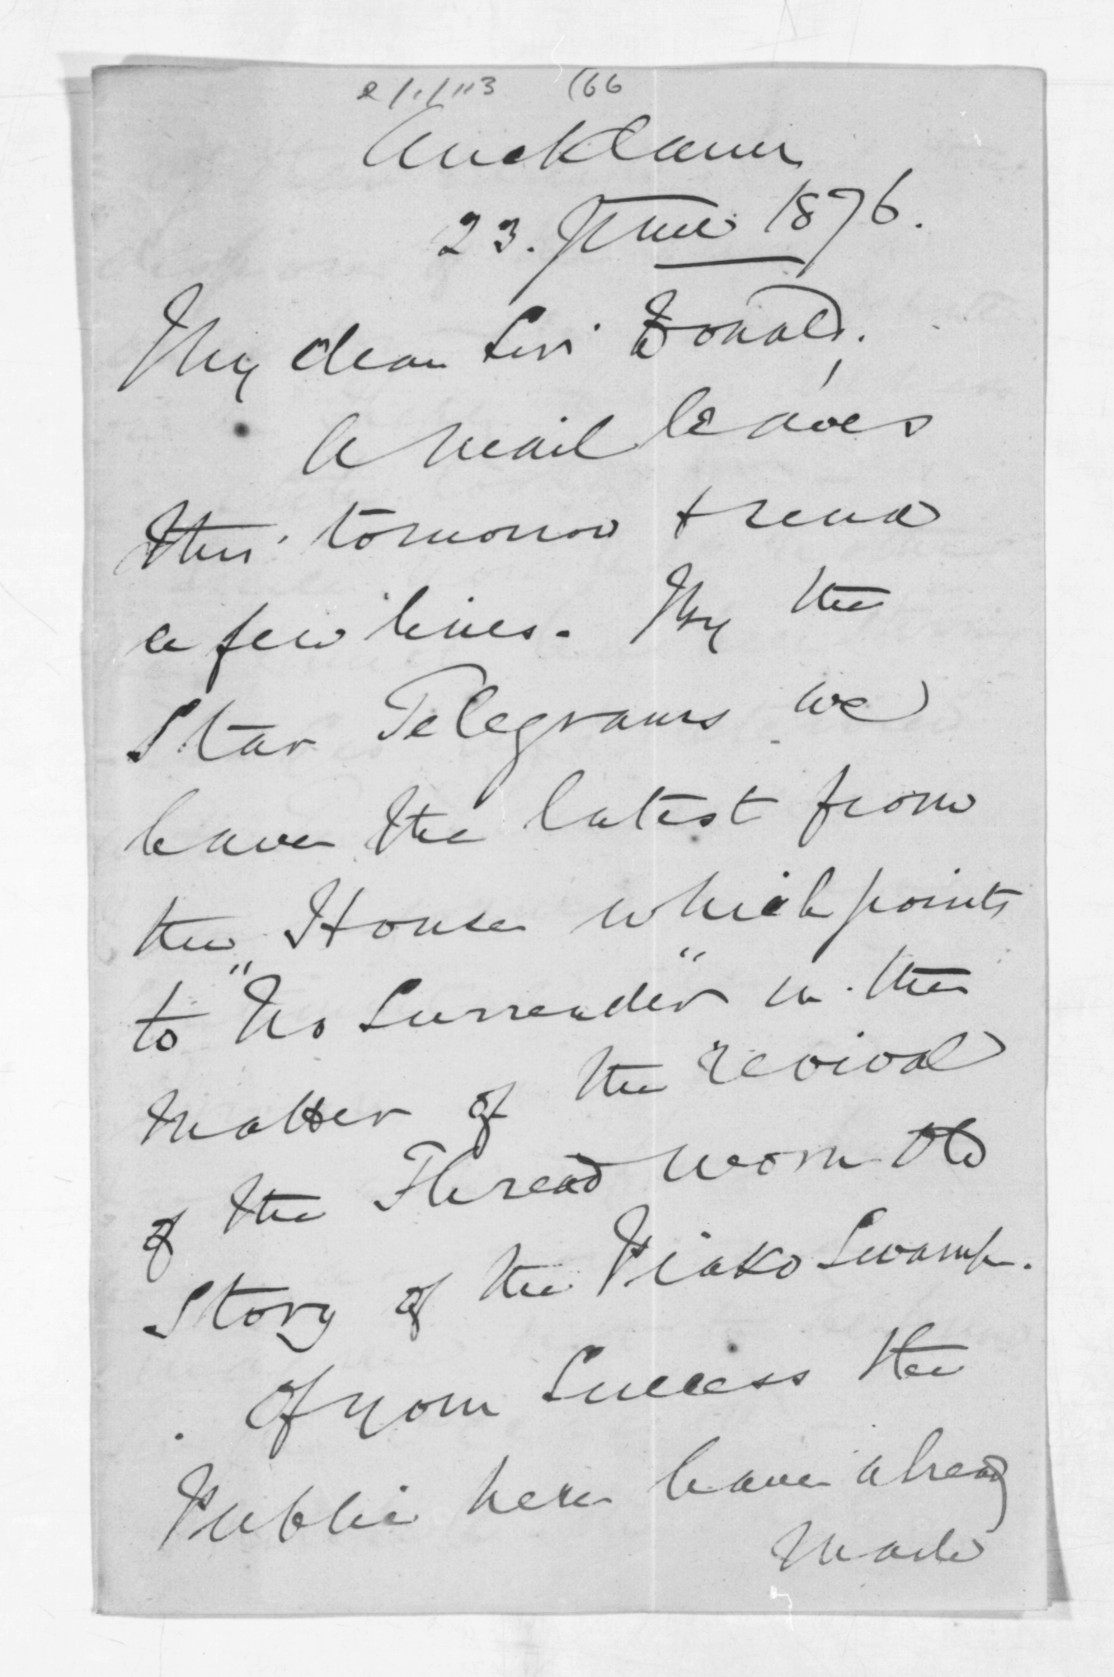 2/1/113 166
Auckland
23. June 1876.
My dear Sir Donald,
A mail leaves
this tomorrow & send
a few lines. By the
Star Telegrams we
have the latest from
the House which points
to "No Surrender" in the
matter of the revival
of the Thread worn old
Story of the Piako Swamp.
Of your Success the
Public here have already
made